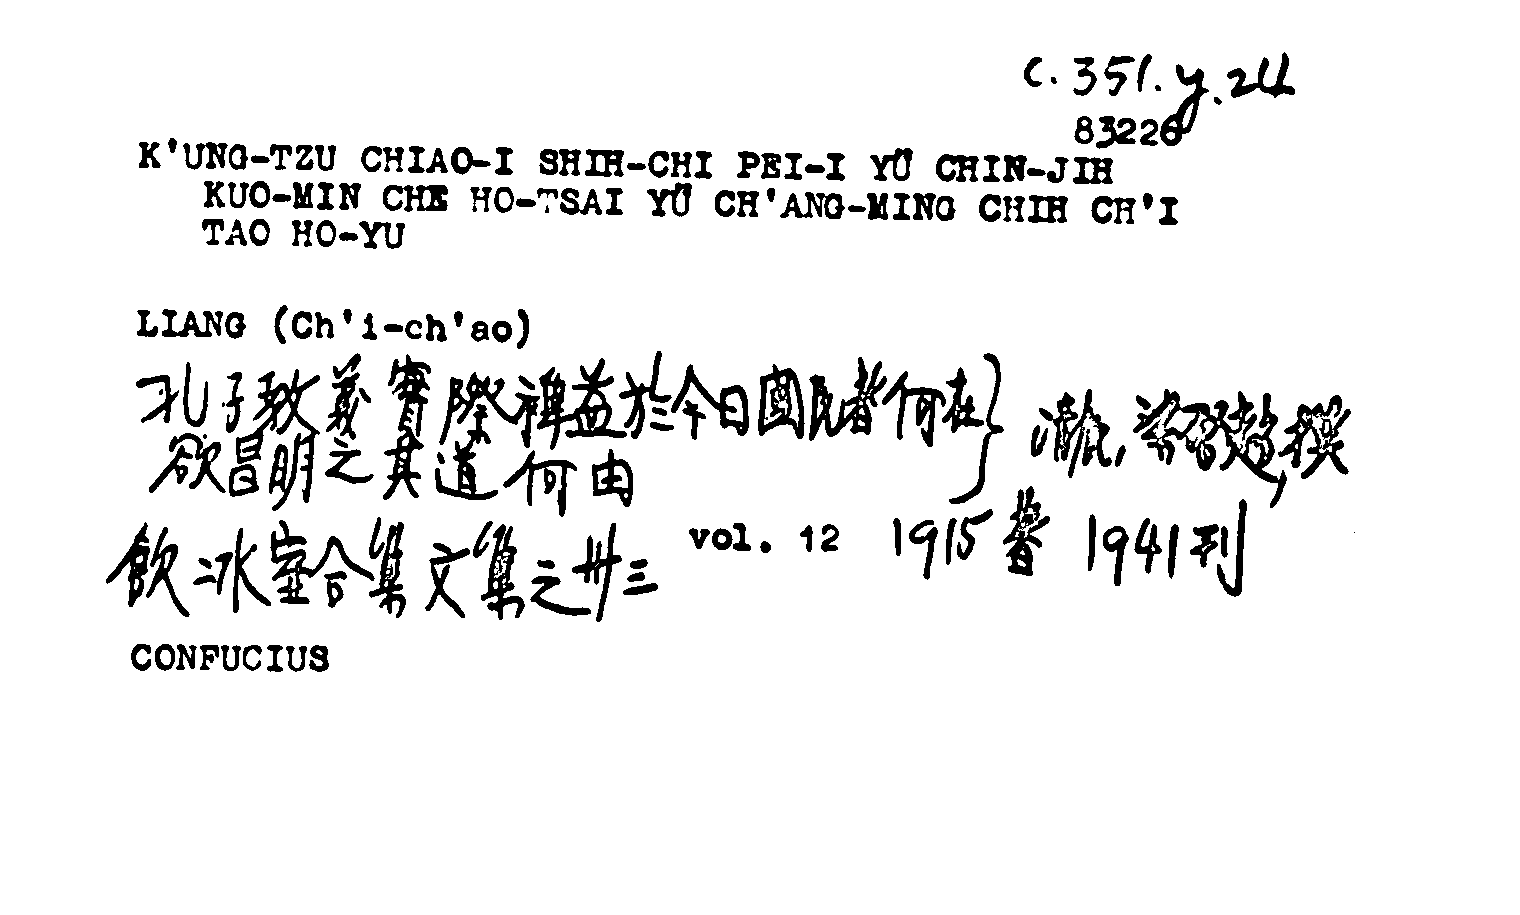 c. 351. y. 24
83226
K'UNG-TZU CHIAO-I SHIH-CHI PEI-I YÜ CHIN-JIH
KUO-MIN CHE HO-TSAI YÜ CH'ANG-MING CHIH CH'I
TAO HO-YU
LIANG (Ch'i-ch'ao)
孔子敎義實際裨益於今日國民者何在
欲昌明之其道何由
梁啓超撰
飲冰室合集文集之卅三 vol. 12 1915 1941刊
CONFUCIUS